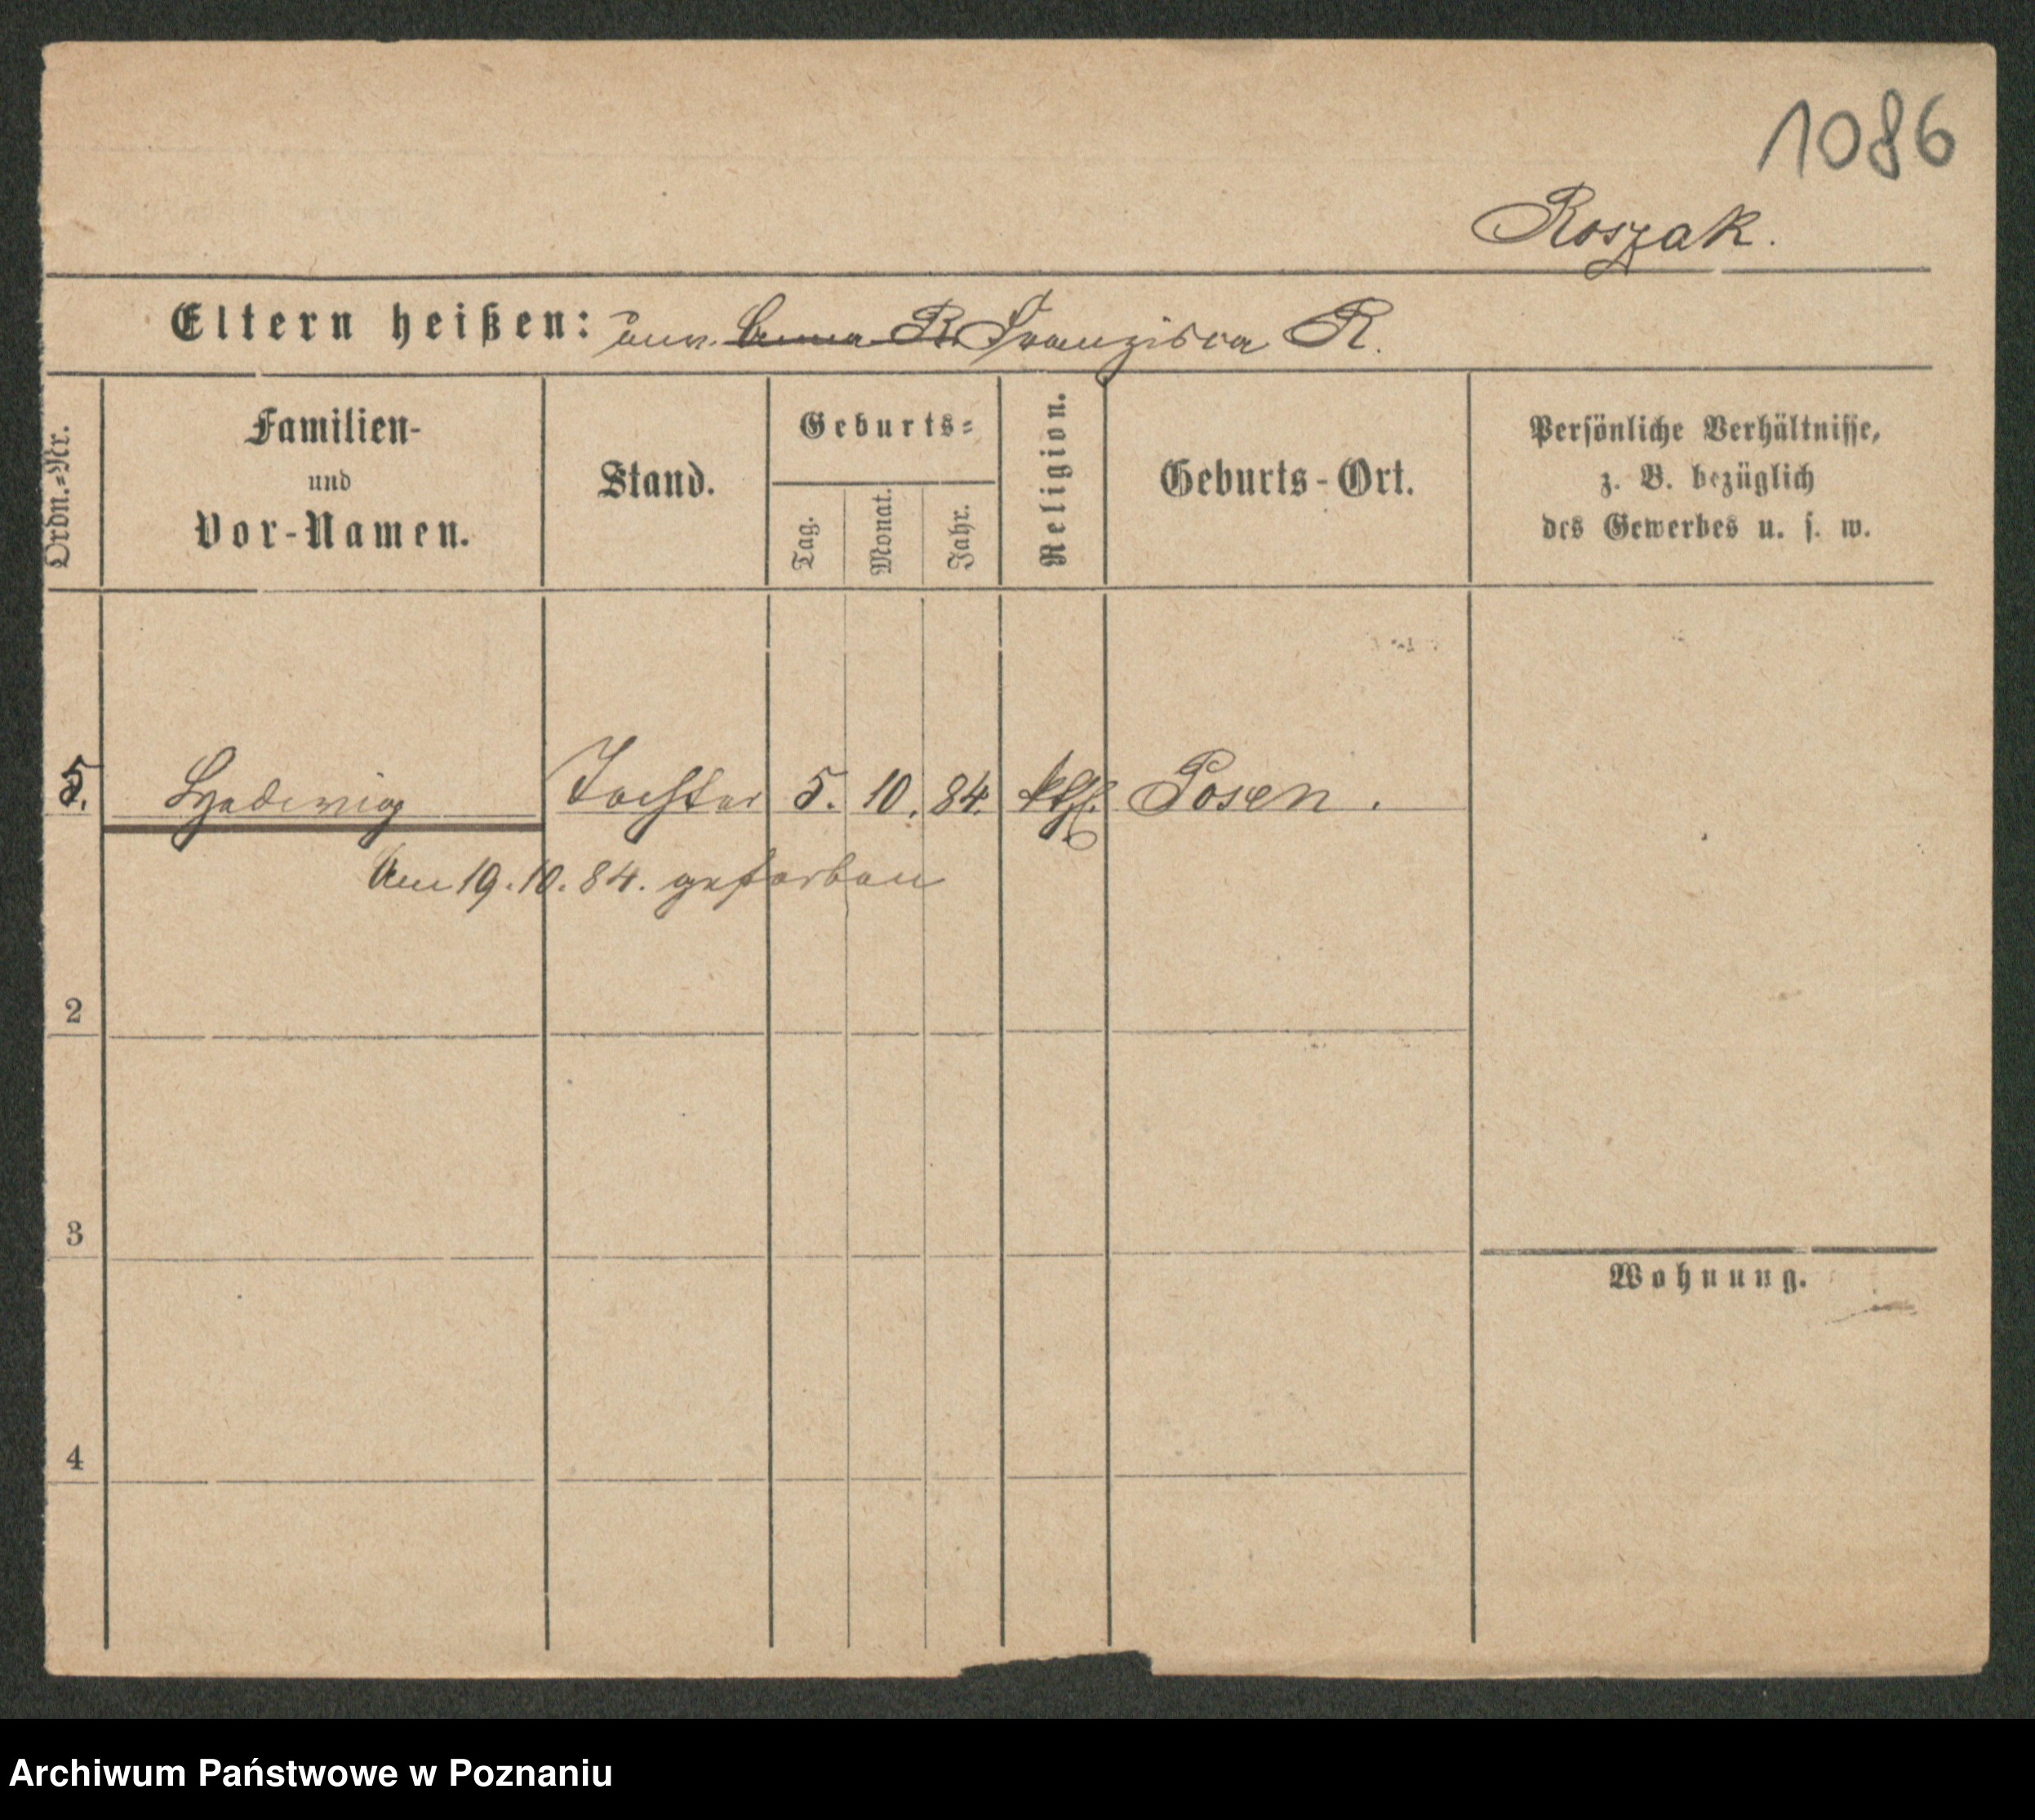 1086
Roszak.
Eltern heißen: unv. Anna R. Franzisca R.
Ordn.-Nr.
Familien-
und
Vor-Namen.
Stand.
Geburts-
Tag.
Monat.
Jahr.
Religion.
Geburts-Ort.
Persönliche Verhältnisse,
z. B. bezüglich
des Gewerbes u. s. w.
5. Hedwig Tochter 5. 10. 84. kth. Posen.
Am 19. 10. 84. gestorben
2
3
Wohnung.
4
Archiwum Państwowe w Poznaniu